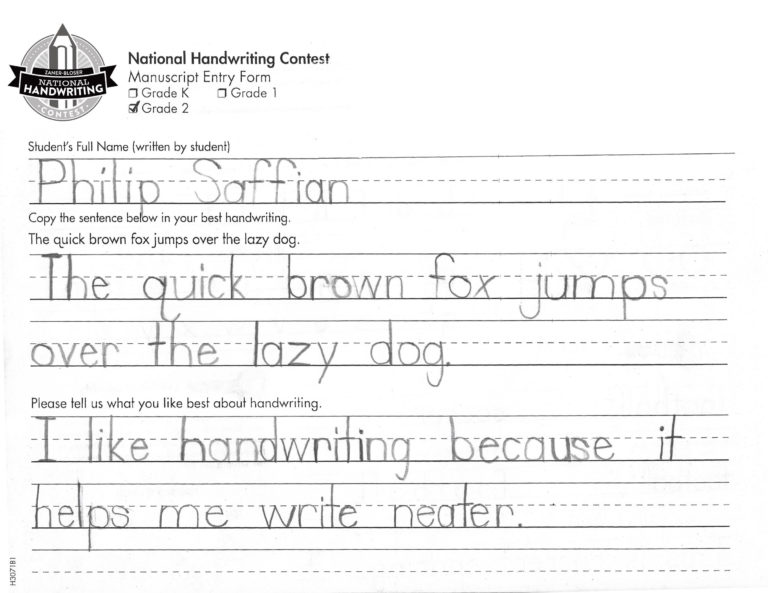 ZANER-BLOSER
NATIONAL
HANDWRITING
CONTEST
National Handwriting Contest
Manuscript Entry Form
Grade K Grade 1
Grade 2
Student's Full Name (written by student)
Philip Saffian
Copy the sentence below in your best handwriting.
The quick brown fox jumps over the lazy dog.
The quick brown fox jumps
over the lazy dog.
Please tell us what you like best about handwriting.
I like handwriting because it
helps me write neater.
H307181